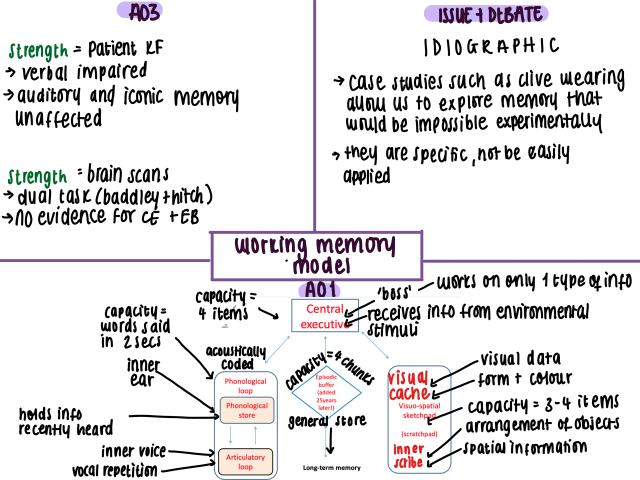 AO3
strength = patient KF
→ verbal impaired
→ auditory and iconic memory
unaffected
strength = brain scans
→ dual task (baddley+hitch)
→ no evidence for CE + EB
ISSUE + DEBATE
IDIOGRAPHIC
→ case studies such as clive wearing
allow us to explore memory that
would be impossible experimentally
→ they are specific, not be easily
applied
working memory
model
AO1
capacity =
4 items
Central
executive
'boss'
works on only 1 type of info
receives info from environmental
stimuli
capacity =
words said
in 2 secs
inner
ear
holds info
recently heard
inner voice
vocal repetition
acoustically
coded
Phonological
loop
Phonological
store
Articulatory
loop
capacity = 4 chunks
Episodic
buffer
(added
25years
later!)
general store
Long-term memory
visual
cache
Visuo-spatial
sketchpad
(scratchpad)
inner
scribe
visual data
form + colour
capacity = 3-4 items
arrangement of objects
spatial information